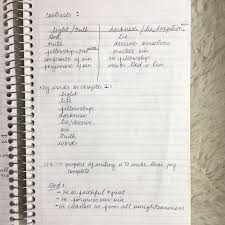 contrasts :
light / truth darkness / lie, deception, sin
God lie
truth deceive ourselves
fellowship practice sin
confession of sin no fellowship
forgiveness of sin makes God a liar
Key words in chapter 1 :
light
life
fellowship
darkness
lie/deceive
sin
truth
word
1:4 → purpose of writing is to make their joy
complete
God :
- He is faithful & just
- He forgives our sin
- He cleanses us from all unrighteousness